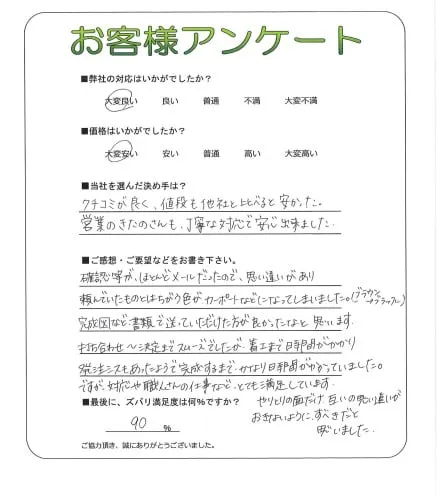 お客様アンケート
■弊社の対応はいかがでしたか?
大変良い 良い 普通 不満 大変不満
■価格はいかがでしたか?
大変安い 安い 普通 高い 大変高い
■当社を選んだ決め手は?
クチコミが良く、値段も他社と比べると安かった。
営業のきたのさんも、丁寧な対応で安心出来ました。
■ご感想・ご要望などをお書き下さい。
確認等が、ほとんどメールだったので、思い違いがあり
頼んでいたものとはちがう色がカーポートなどになってしまいました。(ブラウン
ブラック)
完成図など書類で送っていただけた方が良かったなと思います。
打ち合わせ〜決定までスムーズでしたが、着工まで日時間がかかり
発注ミスもあったようで完成するまでかなり日時間がかかっていました。
ですが、対応や職人さんの仕事など、とても満足しています。
■最後に、ズバリ満足度は何%ですか?
90 %
やりとりの面だけ互いの思い違いが
おきないように、すべきだと
思いました。
ご協力頂き、誠にありがとうございました。